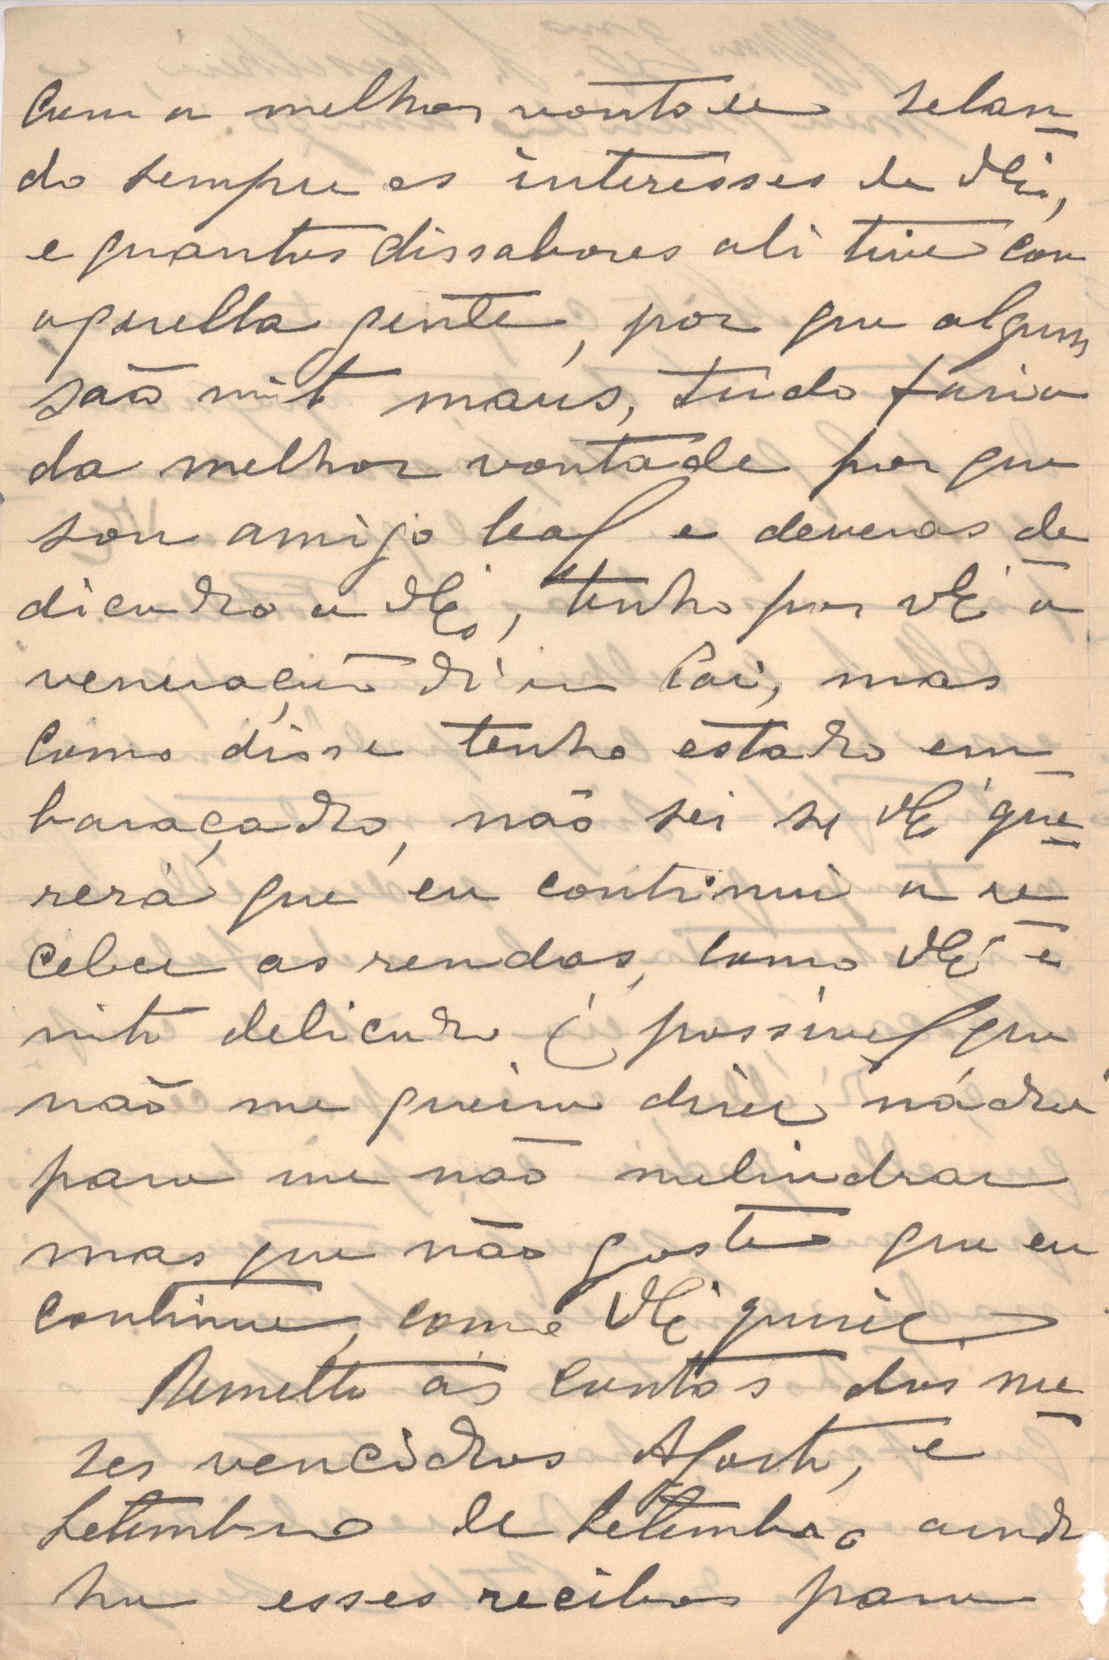 Com a melhor vontade zelan
do sempre os interesses de VEx,
e quantos dissabores ali tive com
aquella gente, por que alguns
são mt maus, tudo faria
da melhor vontade por que
sou amigo leal e deveras de
dicado a VEx, tenho por VEx a
veneração d'um Pai, mas
como disse tenho estado em
baraçado, não sei se VEx que
rerá que eu continui a re
ceber as rendas, como VEx é
mto delicado é possivel que
não me queira dizer náda
para me não melindrar
mas que não goste que eu
continue, como VEx quizer
Remetto as contas dos me
zes vencidos Agosto, e
Setembro de Setembro ainda
ha esses recibos para